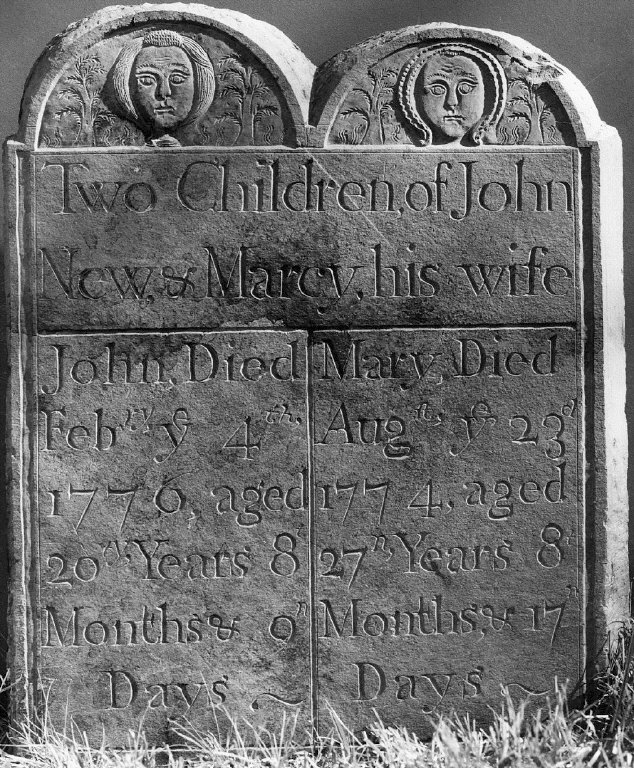 Two Children, of John
New, & Marcy, his wife
John, Died
Febry ye 4th,
1776, aged
20ty, Years 8t
Months & 9n
Days ~
Mary, Died
Augst, ye 23d
1774, aged
27n, Years 8t
Months, & 17n
Days ~